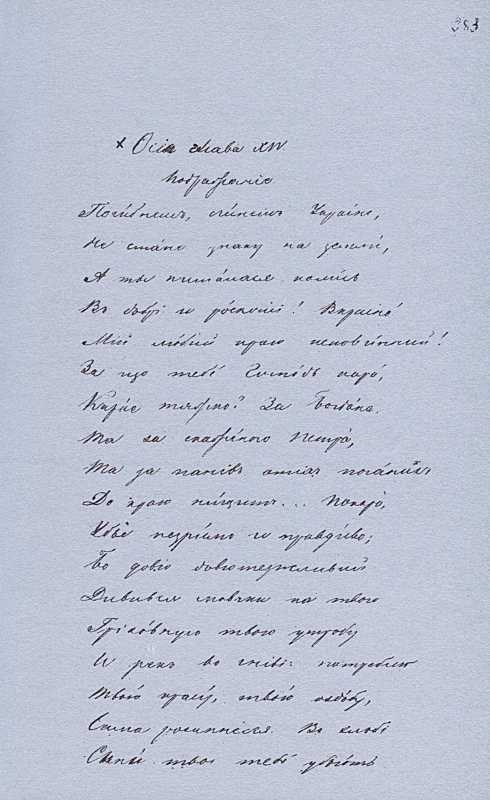 383
× Осіи глава XIV.
Подражаніе
Погибнешь, згинешь Украіно,
Не стане знаку на земли,
А ты пышалася колись
Въ добрі и роскоші! Вкраіно!
Мій любий краю неповинний!
За що тебе Господь кара,
Карає тяжко? За Богдана,
Та за скаженого Петра,
Та за панівъ отихъ поганихъ
До краю нищить... Покара,
Убье незримо и правдиво;
Бо довго довготерпеливий
Дивився мовчки на твою
Гріховную твою утробу
И рекъ во гніві: потреблю
Твою красу, твою оздобу,
Сама розипнесся. Во злобі
Сыны твои тебе убьють